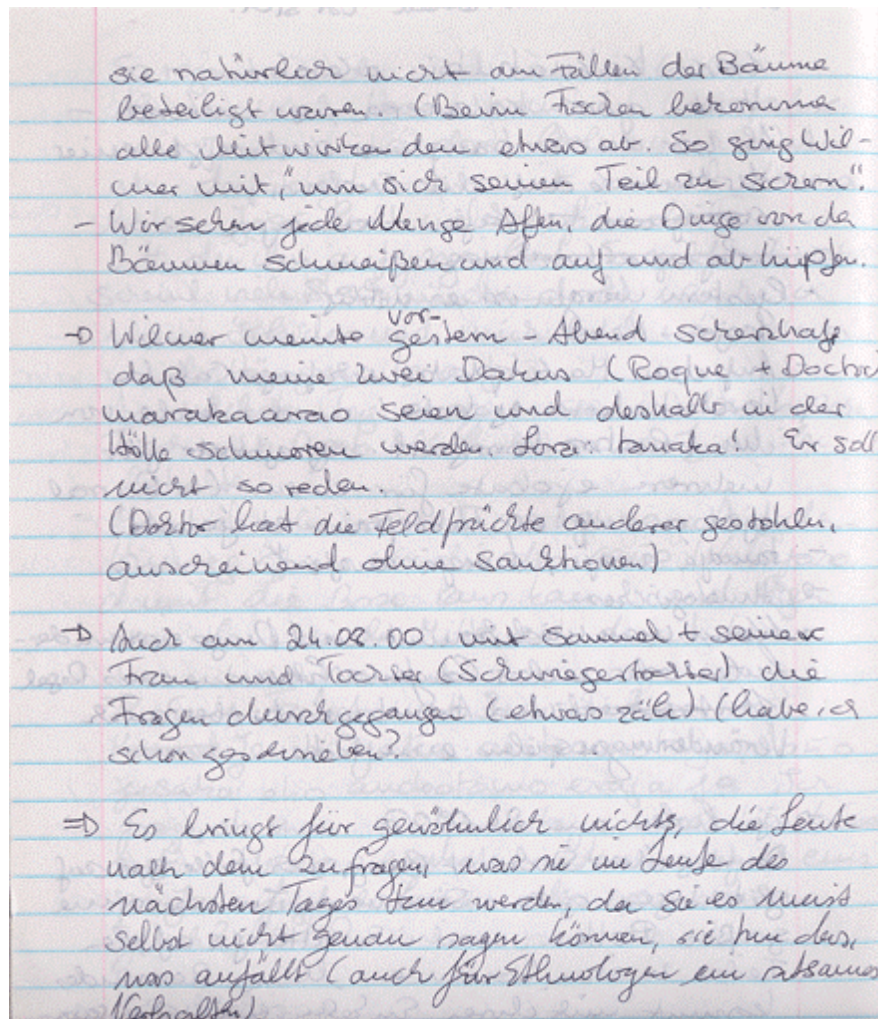 sie natürlich nicht am Fällen der Bäume
beteiligt waren. (Beim Fischen bekommen
alle Mitwirkenden etwas ab. So ging Wil-
mer mit, "um sich seinen Teil zu sichern".
- Wir sehen jede Menge Affen, die Dinge von da
Bäumen schmeißen und auf und ab hüpfen.
→ Wilmer meinte vor-gestern - Abend scherzhaft
daß meine zwei Datus (Roque + Doctor)
seien und deshalb in der
Hölle schmoren werden. ! Er soll
nicht so reden.
(Doktor hat die Feldfrüchte anderer gestohlen,
anscheinend ohne Sanktionen)
→ Auch am 24.08.00 mit Samuel + seiner
Frau und Tochter (Schwiegertochter) die
Fragen durchgegangen (etwas zäh) (habe ich
schon geschrieben?
⇒ Es bringt für gewöhnlich nichts, die Leute
nach dem zu fragen, was sie im Laufe des
nächsten Tages tun werden, da sie es meist
selbst nicht genau sagen können, sie tun das,
was anfällt (auch für Ethnologen ein ratsames
Verhalten)